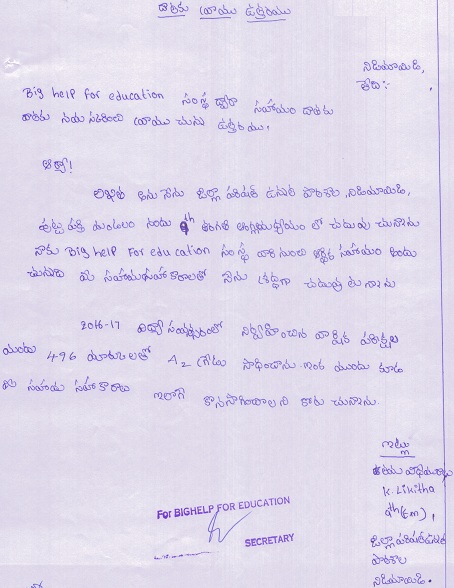 దాతకు రాయు ఉత్తరము
నిడిమామిడి,
తేది:-
Big help For education సంస్థ ద్వారా సహాయం దాతకు
రాయు చున్న ఉత్తరము.
ఆర్యా!
లిఖిత అను నేను జిల్లా పరిషత్ ఉన్నత పాఠశాల, నిడిమామిడి,
పుట్టపర్తి మండలం నందు 9th తరగతి ఆంగ్లమాధ్యమం లో చదువు చున్నాను
నాకు Big help For education సంస్థ వారి నుంచి ఆర్థిక సహాయం అందు
చున్నది మీ సహాయసహాకారాలతో నేను శ్రద్ధగా చదువుతున్నాను
2016-17 విద్యా సంవత్సరంలో నిర్వహించిన వార్షిక పరీక్షల
యందు 496 మార్కులతో A2 గ్రేడు సాధించాను ఇక ముందు కూడ
మీ సహాయ సహకారాలు ఇలాగే కొనసాగించాలని కోరు చున్నాను.
ఇట్లు
K. Likitha
9th(Em),
జిల్లాపరిషత్ఉన్నత
పాఠశాల
నిడిమామిడి.
For BIGHELP FOR EDUCATION
SECRETARY